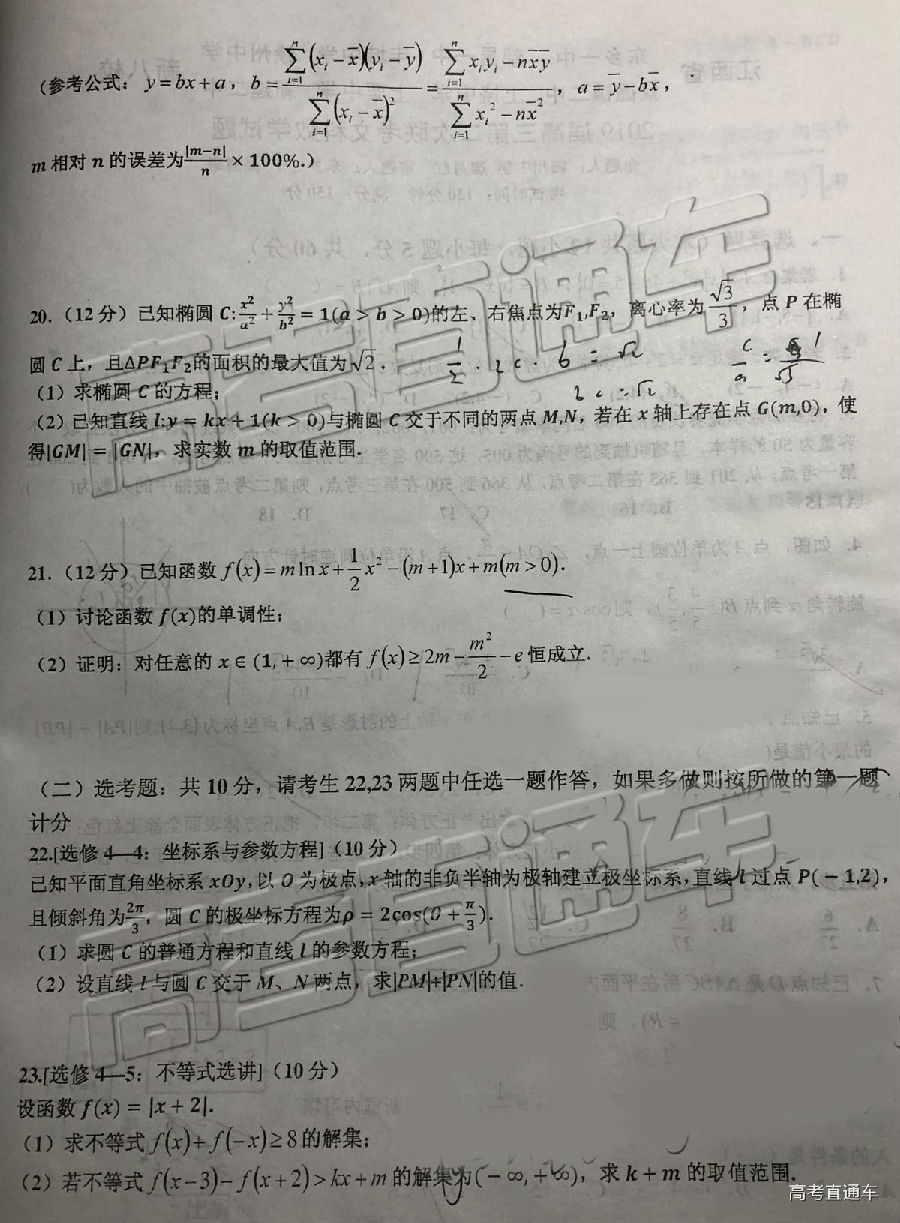 (参考公式：y=bx+a，b=\frac{\sum_{i=1}^{n}(x_i-\overline{x})(y_i-\overline{y})}{\sum_{i=1}^{n}(x_i-\overline{x})^2}=\frac{\sum_{i=1}^{n}x_iy_i-n\overline{xy}}{\sum_{i=1}^{n}x_i^2-n\overline{x}^2}，a=\overline{y}-b\overline{x}，
m 相对 n 的误差为\frac{|m-n|}{n}×100%.)
20.（12 分）已知椭圆 C:\frac{x^2}{a^2}+\frac{y^2}{b^2}=1(a>b>0)的左、右焦点为F_1,F_2，离心率为\frac{\sqrt{3}}{3}，点 P 在椭
圆 C 上，且ΔPF_1F_2的面积的最大值为√2．
\frac{1}{2}·2c·b=√2
\frac{c}{a}=\frac{1}{√3}
（1）求椭圆 C 的方程；
（2）已知直线 l:y=kx+1(k>0)与椭圆 C 交于不同的两点 M,N，若在 x 轴上存在点 G(m,0)，使
得|GM|=|GN|，求实数 m 的取值范围．
21.（12 分）已知函数 f(x)=m ln x+\frac{1}{2}x^2-(m+1)x+m(m>0).
（1）讨论函数 f(x)的单调性；
（2）证明：对任意的 x∈(1,+∞)都有 f(x)≥2m-\frac{m^2}{2}-e 恒成立.
（二）选考题：共 10 分，请考生 22,23 两题中任选一题作答，如果多做则按所做的第一题
计分
22.[选修 4—4：坐标系与参数方程]（10 分）
已知平面直角坐标系 xOy,以 O 为极点,x 轴的非负半轴为极轴建立极坐标系,直线 l 过点 P(-1,2)，
且倾斜角为\frac{2π}{3}，圆 C 的极坐标方程为ρ=2cos(θ+\frac{π}{3}).
（1）求圆 C 的普通方程和直线 l 的参数方程；
（2）设直线 l 与圆 C 交于 M、N 两点，求|PM|+|PN|的值．
23.[选修 4—5：不等式选讲]（10 分）
设函数 f(x)=|x+2|.
（1）求不等式 f(x)+f(-x)≥8 的解集；
（2）若不等式 f(x-3)-f(x+2)>kx+m 的解集为(-∞,+∞)，求 k+m 的取值范围.
高考直通车
高考直通车
高考直通车